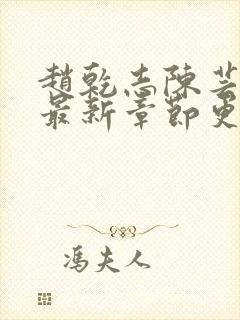 趙乾志陳芸
最新章節更
馮夫人